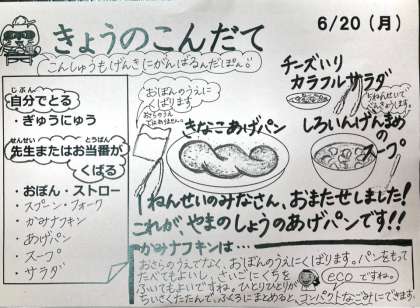 きょうのこんだて
6/20（月）
こんしゅうもげんきにがんばるんだぽん♪
自分でとる
じぶん
・ぎゅうにゅう
先生またはお当番が
せんせい
とうばん
くばる
・おぼん・ストロー
・スプーン・フォーク
・かみナフキン
・あげパン
・スープ
・サラダ
おぼんのうえに
くばります
きなこあげパン
チーズいり
カラフルサラダ
しろいんげんまめ
の
スープ
1ねんせいのみなさん、おまたせしました！
これが やまのしょうのあげパンです!!
かみナフキンは…
おさらのうえでなく、おぼんのうえにくばります。パンをもって
たべてもよいし、さいごにくちを
ふいてもよいですね。ひとりひとりが
ちいさくたたんで、ふくろにまとめると、コンパクトなごみにできます。
ecoですね。